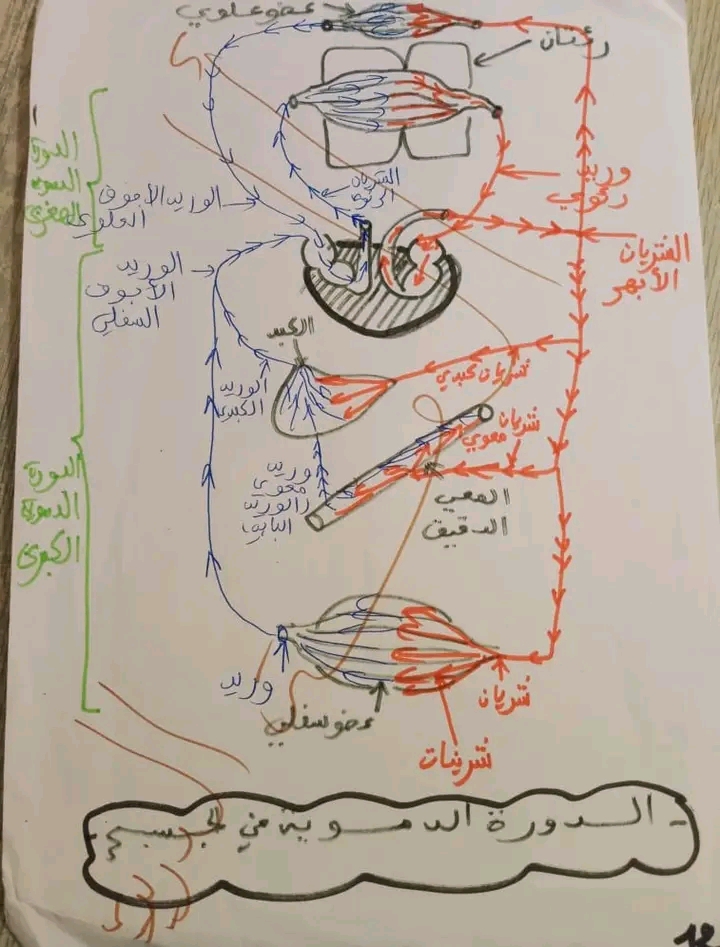 عضو علوي
رئتان
وريد
رئوي
الشريان
الرئوي
الوريد الأجوف
العلوي
الدورة
الدموية
الصغرى
الشريان
الأبهر
الوريد
الأجوف
السفلي
الكبد
شريان كبدي
الوريد
الكبدي
شريان
معوي
وريد
معوي
المعي
الدقيق
الدورة
الدموية
الكبرى
وريد
عضو سفلي
شريان
شرينات
- الدورة الدموية في الجسم -